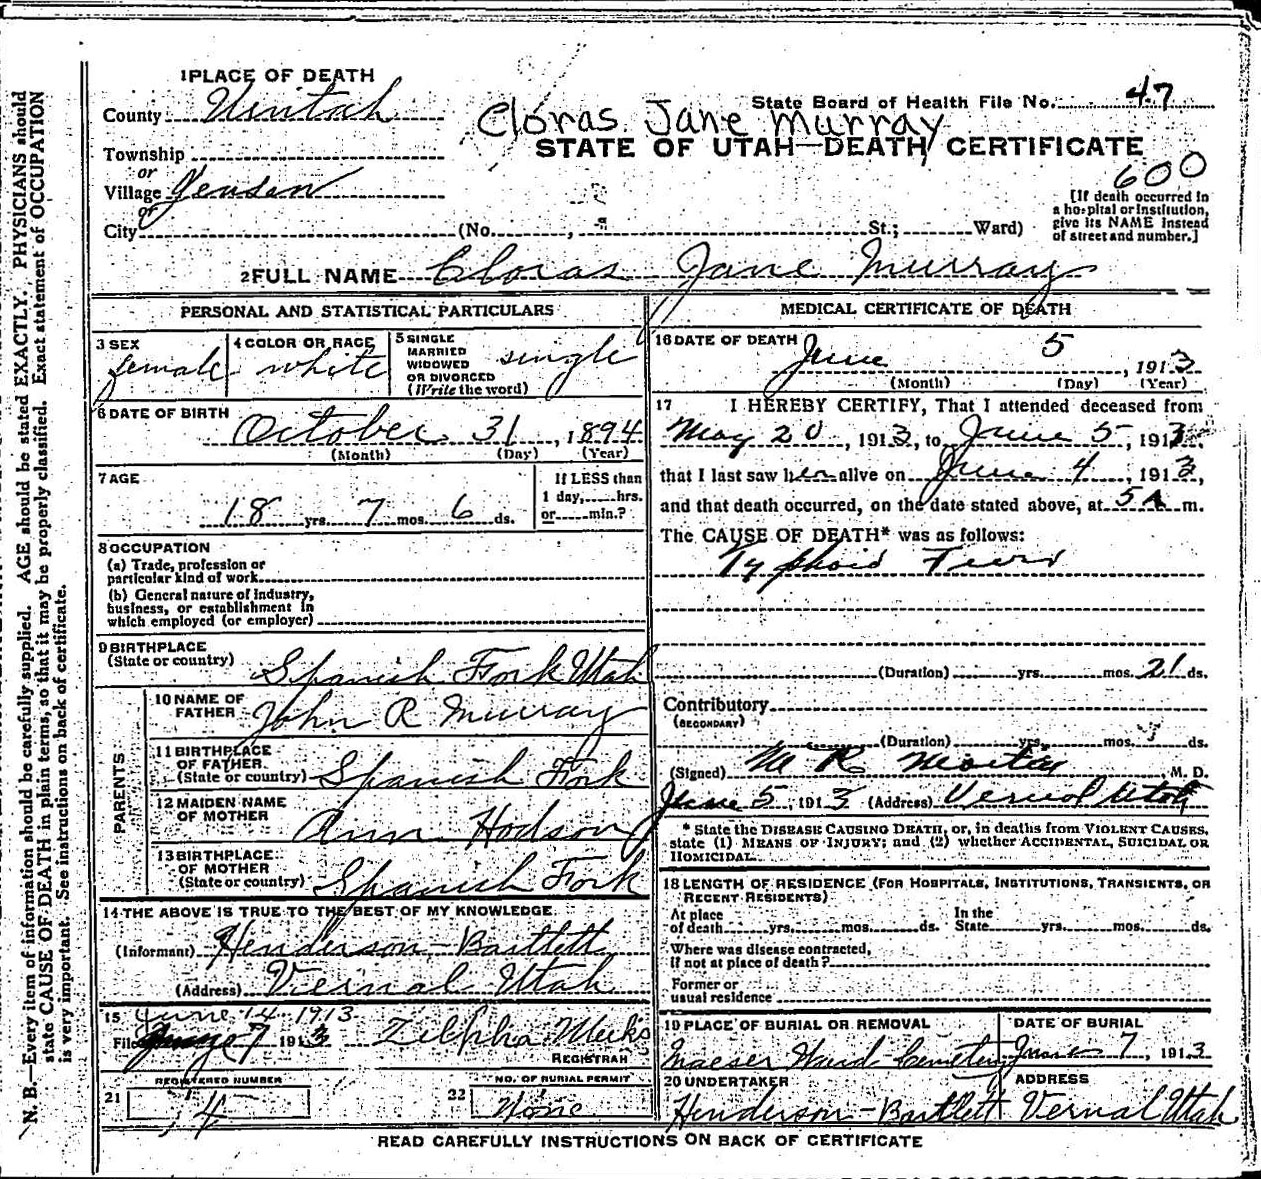 1 PLACE OF DEATH
County Uintah
State Board of Health File No. 47
Cloras Jane Murray
STATE OF UTAH—DEATH CERTIFICATE
Township
or
Village Jensen
or
City (No. , St.; Ward)
600
[If death occurred in
a hospital or institution,
give its NAME instead
of street and number.]
2 FULL NAME Cloras Jane Murray
PERSONAL AND STATISTICAL PARTICULARS
3 SEX female
4 COLOR OR RACE white
5 SINGLE
MARRIED
WIDOWED
OR DIVORCED
(Write the word) single
6 DATE OF BIRTH
October 31, 1894
(Month) (Day) (Year)
7 AGE
18 yrs. 7 mos. 6 ds.
If LESS than
1 day, hrs.
or min.?
8 OCCUPATION
(a) Trade, profession or
particular kind of work
(b) General nature of industry,
business, or establishment in
which employed (or employer)
9 BIRTHPLACE
(State or country) Spanish Fork Utah
PARENTS
10 NAME OF
FATHER John R Murray
11 BIRTHPLACE
OF FATHER
(State or country) Spanish Fork
12 MAIDEN NAME
OF MOTHER Ann Hodson
13 BIRTHPLACE
OF MOTHER
(State or country) Spanish Fork
14 THE ABOVE IS TRUE TO THE BEST OF MY KNOWLEDGE
(Informant) Henderson-Bartlett
(Address) Vernal Utah
15 June 14 1913
Filed 7 1913 Zilpha Meeks
REGISTRAR
REGISTERED NUMBER
21 14
NO. OF BURIAL PERMIT
22 None
MEDICAL CERTIFICATE OF DEATH
16 DATE OF DEATH
June 5, 1913
(Month) (Day) (Year)
17 I HEREBY CERTIFY, That I attended deceased from
May 20, 1913, to June 5, 1913,
that I last saw her alive on June 4, 1913,
and that death occurred, on the date stated above, at 5 A m.
The CAUSE OF DEATH* was as follows:
Typhoid Fever
(Duration) yrs. mos. 21 ds.
Contributory
(SECONDARY)
(Duration) yrs. mos. ds.
(Signed) M. D.
June 5, 1913 (Address) Vernal Utah
* State the DISEASE CAUSING DEATH, or, in deaths from VIOLENT CAUSES,
state (1) MEANS OF INJURY; and (2) whether ACCIDENTAL, SUICIDAL OR
HOMICIDAL.
18 LENGTH OF RESIDENCE (FOR HOSPITALS, INSTITUTIONS, TRANSIENTS, OR
RECENT RESIDENTS)
At place
of death yrs. mos. ds.
In the
State yrs. mos. ds.
Where was disease contracted,
if not at place of death?
Former or
usual residence
19 PLACE OF BURIAL OR REMOVAL
Maeser Ward Cemetery
DATE OF BURIAL
June 7, 1913
20 UNDERTAKER
Henderson-Bartlett
ADDRESS
Vernal Utah
READ CAREFULLY INSTRUCTIONS ON BACK OF CERTIFICATE
N. B.—Every item of information should be carefully supplied. AGE should be stated EXACTLY. PHYSICIANS should
state CAUSE OF DEATH in plain terms, so that it may be properly classified. Exact statement of OCCUPATION
is very important. See instructions on back of certificate.